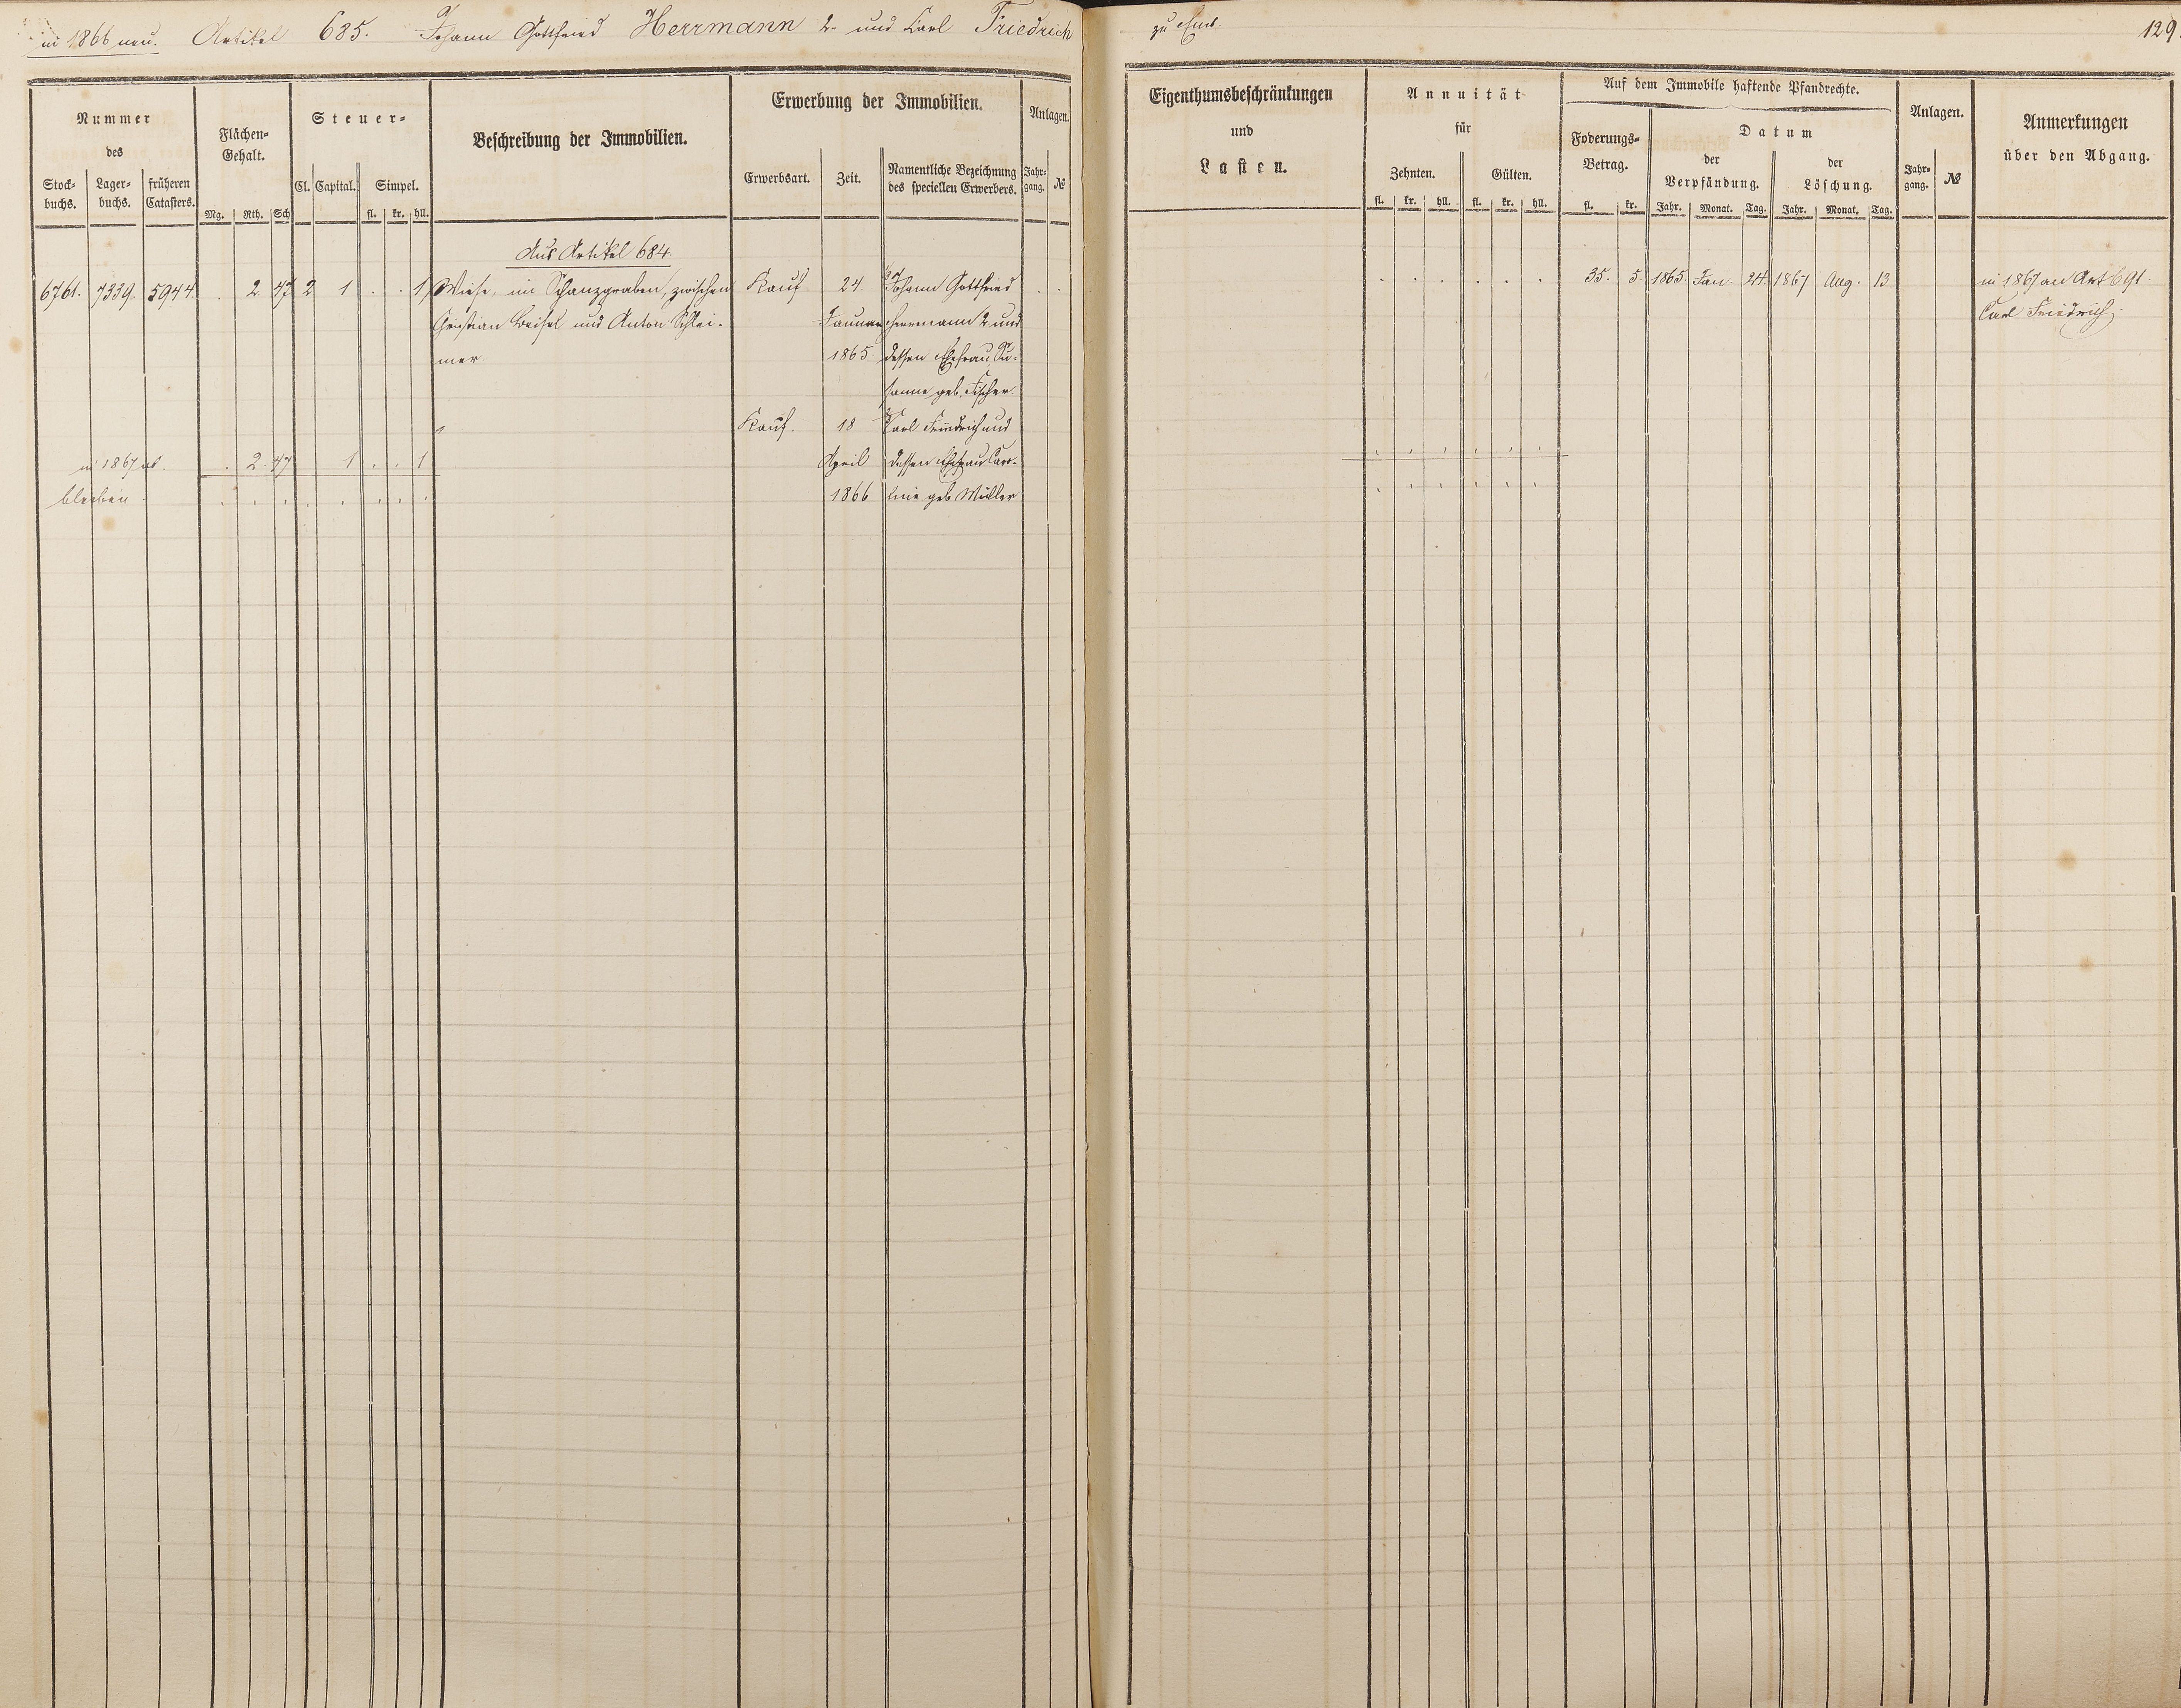 in 1866 neu. Artikel 685. Johann Gottfried Herrmann 2. und Carl Friedrich zu Ems. 129.
Nummer
des
Stock-
buchs.
Lager-
buchs.
früheren
Catasters.
Flächen-
Gehalt.
Mg. Rth. Sch
Steuer-
Cl. Capital. Simpel.
fl. kr. hll.
Beschreibung der Immobilien.
Erwerbung der Immobilien.
Erwerbsart. Zeit.
Namentliche Bezeichnung
des speciellen Erwerbers.
Anlagen.
Jahr-
gang. №
Eigenthumsbeschränkungen
und
Lasten.
Annuität
für
Zehnten. Gülten.
fl. kr. hll. fl. kr. hll.
Auf dem Immobile haftende Pfandrechte.
Foderungs-
Betrag.
fl. kr.
Datum
der
Verpfändung.
Jahr. Monat. Tag.
der
Löschung.
Jahr. Monat. Tag.
Anlagen.
Jahr-
gang. №
Anmerkungen
über den Abgang.
Aus Artikel 684.
6761. 7339. 5944 . 2 47 2 1 . . 1 Wiese, im Schanzgraben, zwischen Kauf 24. Johann Gottfried . . . . . . . . 35. 5. 1865. Jan. 24. 1867 Aug. 13 in 1867 an Art 691.
Christian Beisel und Anton Schlei- Januar Herrmann 2 und Carl Friedrich.
mer. 1865 dessen Ehefrau Su-
sanne geb. Fischer.
Kauf. 18 Carl Friedrich und
in 1867 ab. . 2. 47 1 . . 1 April dessen Ehefrau Caro- . . . . . .
bleiben . . . . . . . . 1866 line geb. Müller . . . . . .